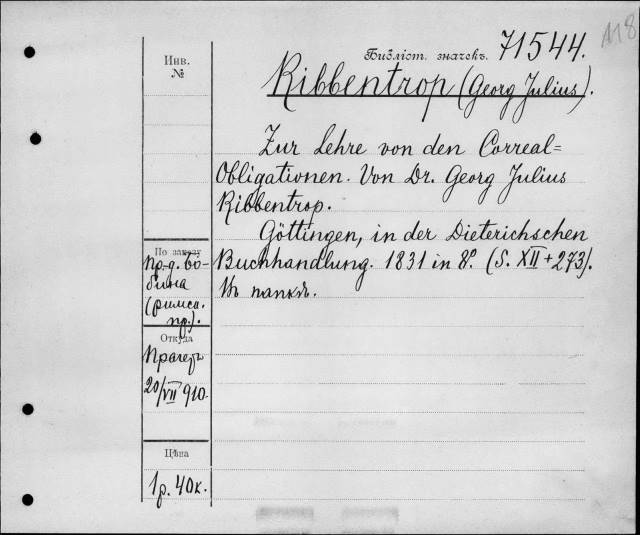 118
Библіот. значекъ. 71544.
Инв.
№
Ribbentrop (Georg Julius).
Zur Lehre von den Correal=
Obligationen. Von Dr. Georg Julius
Ribbentrop.
Göttingen, in der Dieterichschen
Buchhandlung. 1831 in 8º. (S. XII + 273).
Въ папкѣ.
По заказу
пр.-д. Бо-
бина
(римск.
пр.).
Откуда
Прагеръ
20/VII 910.
Цѣна
1 р. 40 к.